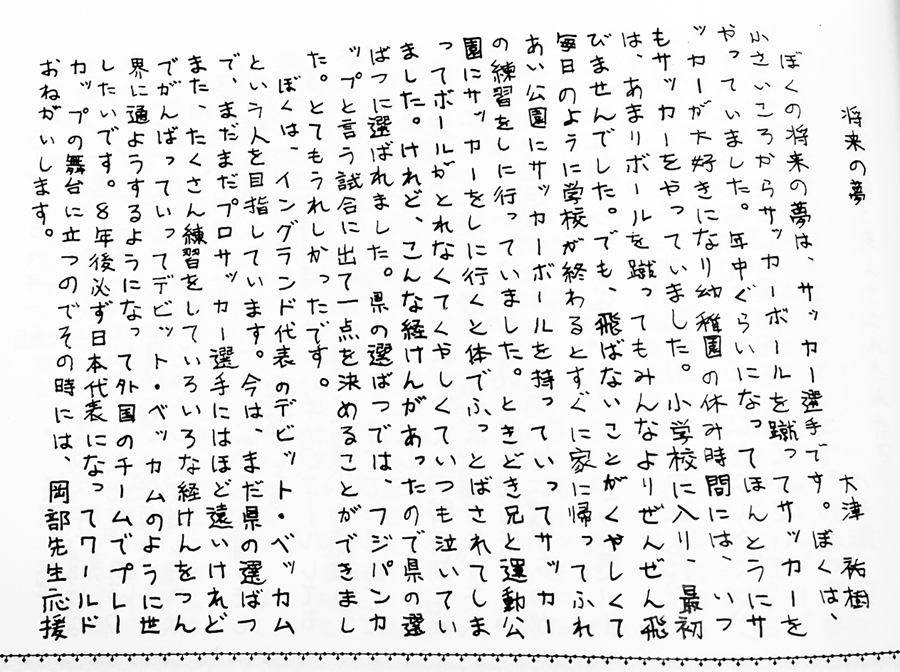 将来の夢
大津 祐樹
ぼくの将来の夢は、サッカー選手です。ぼくは、
小さいころからサッカーボールを蹴ってサッカーを
やっていました。年中ぐらいになってほんとうにサ
ッカーが大好きになり幼稚園の休み時間には、いつ
もサッカーをやっていました。小学校に入り、最初
は、あまりボールを蹴ってもみんなよりぜんぜん飛
びませんでした。でも、飛ばないことがくやしくて
毎日のように学校が終わるとすぐに家に帰ってふれ
あい公園にサッカーボールを持っていってサッカー
の練習をしに行っていました。ときどき兄と運動公
園にサッカーをしに行くと体でふっとばされてしま
ってボールがとれなくてくやしくていつも泣いてい
ました。けれど、こんな経けんがあったので県の選
ばつに選ばれました。県の選ばつでは、フジパンカ
ップと言う試合に出て一点を決めることができまし
た。とてもうれしかったです。
ぼくは、イングランド代表のデビット・ベッカム
という人を目指しています。今は、まだ県の選ばつ
で、まだまだプロサッカー選手にはほど遠いけれど
また、たくさん練習をしていろいろな経けんをつん
でがんばっていってデビット・ベッカムのように世
界に通ようするようになって外国のチームでプレー
したいです。8年後必ず日本代表になってワールド
カップの舞台に立つのでその時には、岡部先生応援
おねがいします。